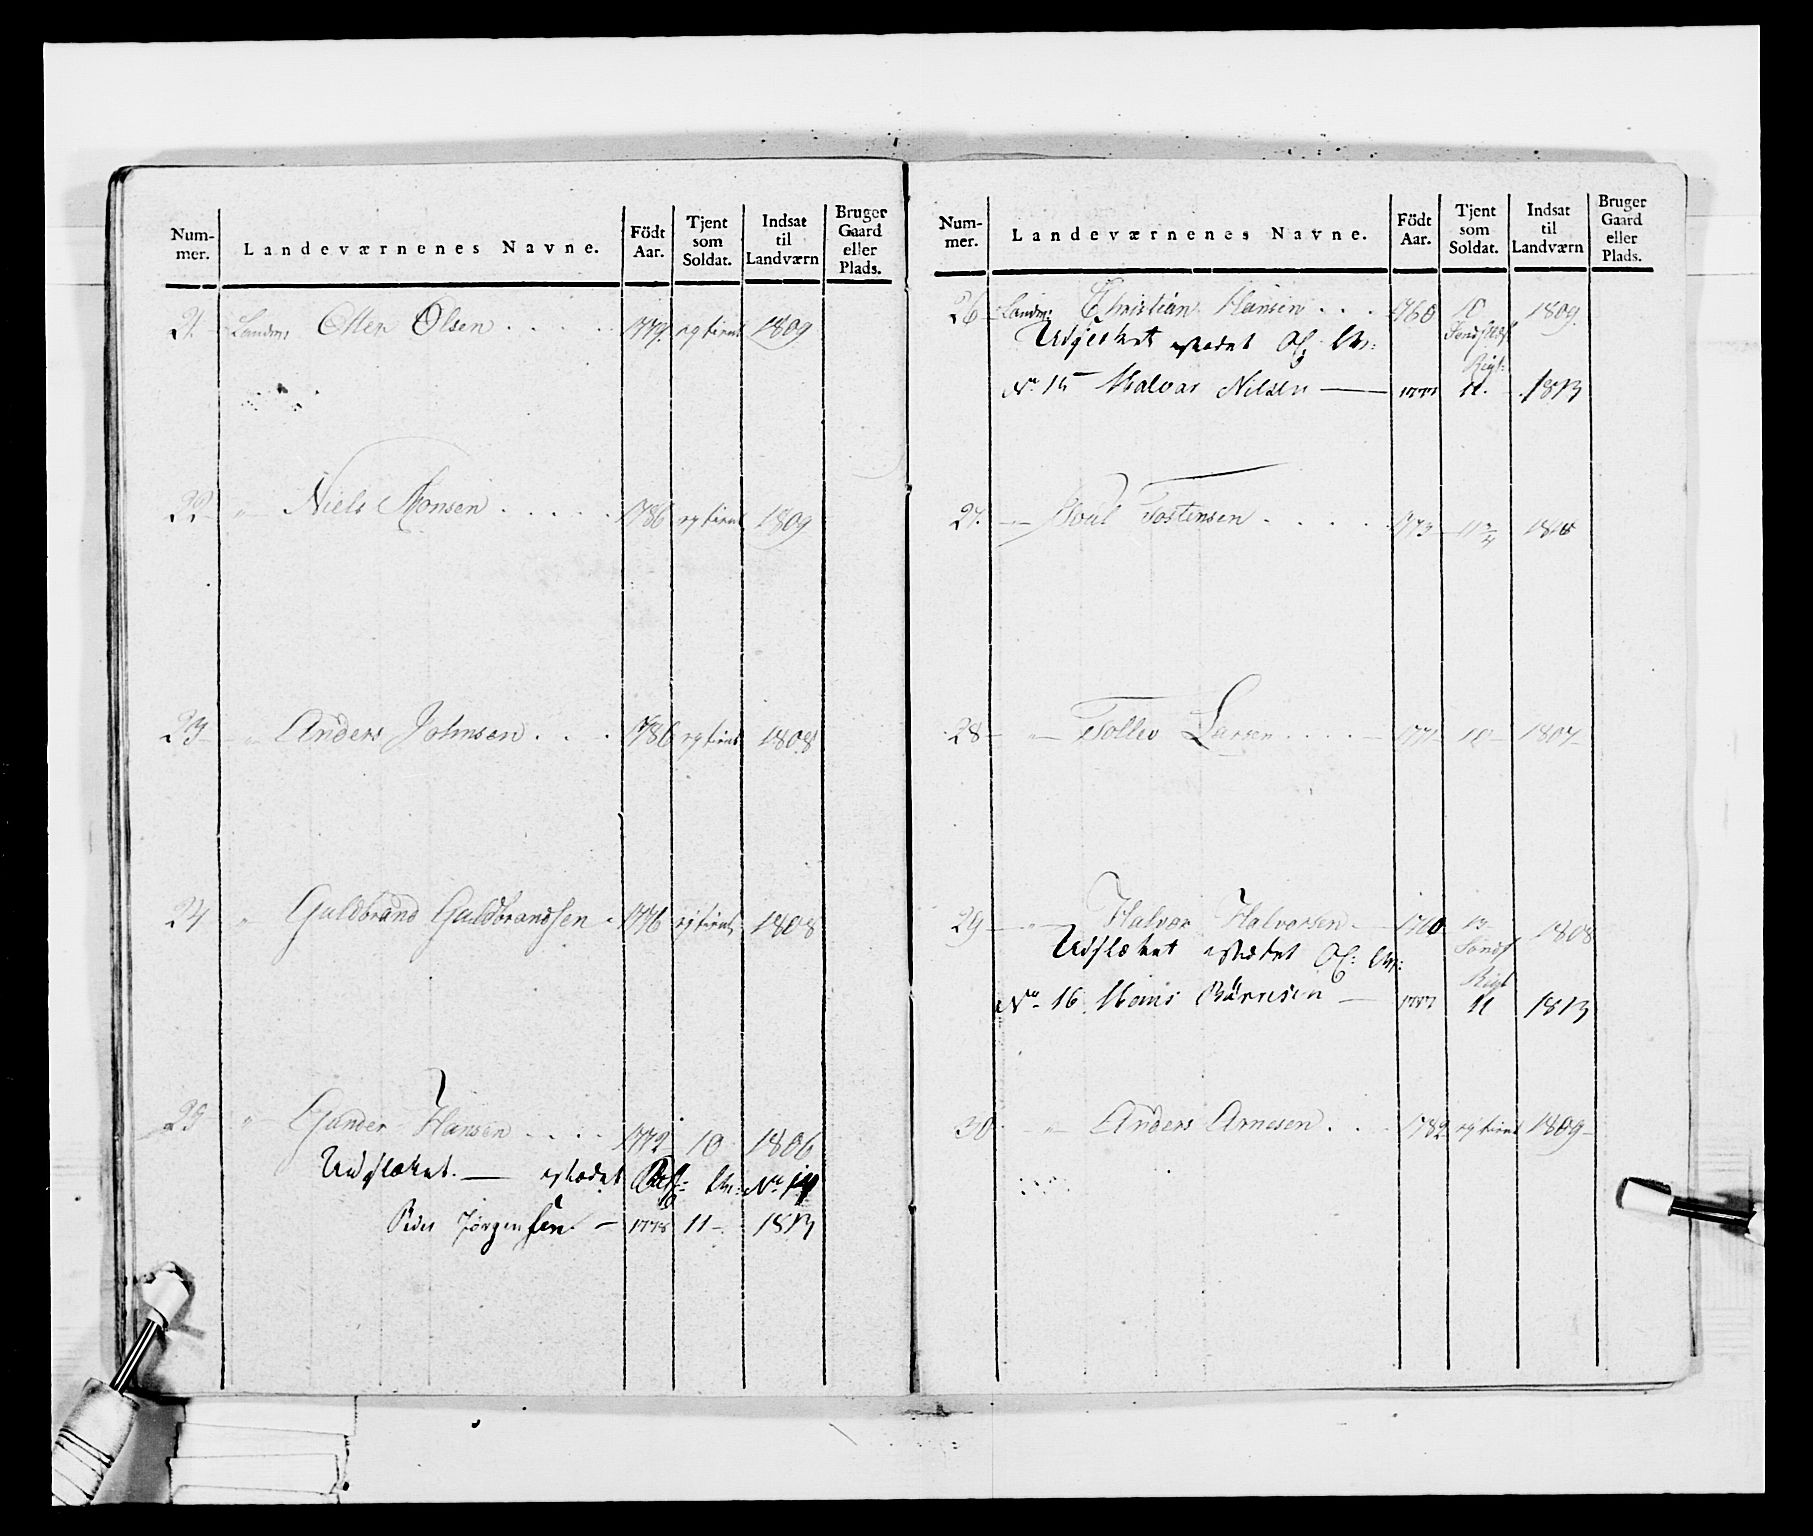 Num-
mer.
Landeværnenes Navne.
Födt
Aar.
Tjent
som
Soldat.
Indsat
til
Landværn
Bruger
Gaard
eller
Plads.
21. Landv: Olsen . . . . 1779. ey tient 1809
22 " Niels Monsen . . . . . 1786 ey tient 1809
23 " Anders Johnsen . . . 1786 ey tient 1808
24 " Guldbrand Guldbrandsen . 1776 ey tient 1808
25 " Gunder Hansen . . . . 1772 10 1806
Udslættet. — No 14
Peder Jørgensen — 1778 11 - 1813
Num-
mer.
Landeværnenes Navne.
Födt
Aar.
Tjent
som
Soldat.
Indsat
til
Landværn
Bruger
Gaard
eller
Plads.
26 Landv: Christian Hansen . . . 1760 10 1809.
Regt:
No 15 Halvor Nilsen — 1777 11. 1813
27. " Tostensen . . . . 1773 11 3/4
28 - " Tollev Larsen . . . . 1771 10 - 1807 -
29 - " Halvor Halvorsen . 1760 13 1808
Udslættet
Regt
No 16 Børresen — 1777 11 1813
30 " Anders Arnesen . . . 1782 ey tient 1809 -